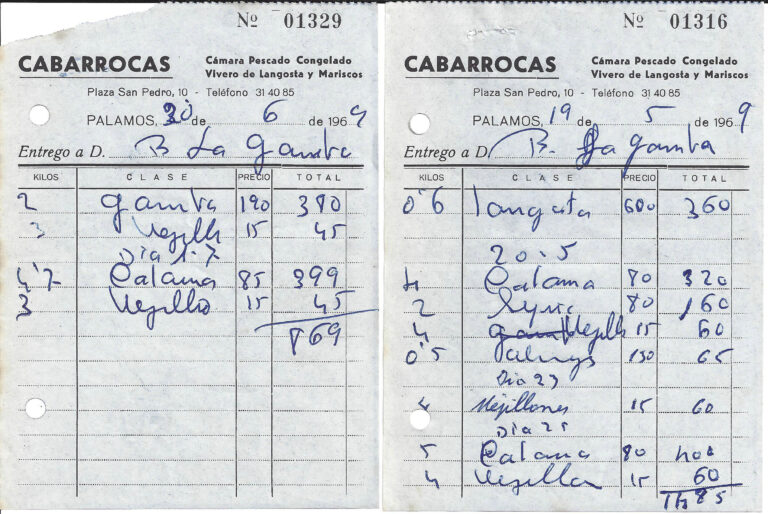 Nº 01329
CABARROCAS
Cámara Pescado Congelado
Vivero de Langosta y Mariscos
Plaza San Pedro, 10 - Teléfono 31 40 85
PALAMOS, 30 de 6 de 1969
Entrego a D. B La Gamba
KILOS CLASE PRECIO TOTAL
2 gamba 190 380
3 15 45
Dia 1-7
4'7 Calama 85 399
3 15 45
869
Nº 01316
CABARROCAS
Cámara Pescado Congelado
Vivero de Langosta y Mariscos
Plaza San Pedro, 10 - Teléfono 31 40 85
PALAMOS, 19 de 5 de 1969
Entrego a D. B. La gamba
KILOS CLASE PRECIO TOTAL
0'6 600 360
20-5
4 Calama 80 320
2 80 160
4 15 60
0'5 130 65
Dia 23
4 Mejillones 15 60
Dia 25
5 Calama 80 400
4 15 60